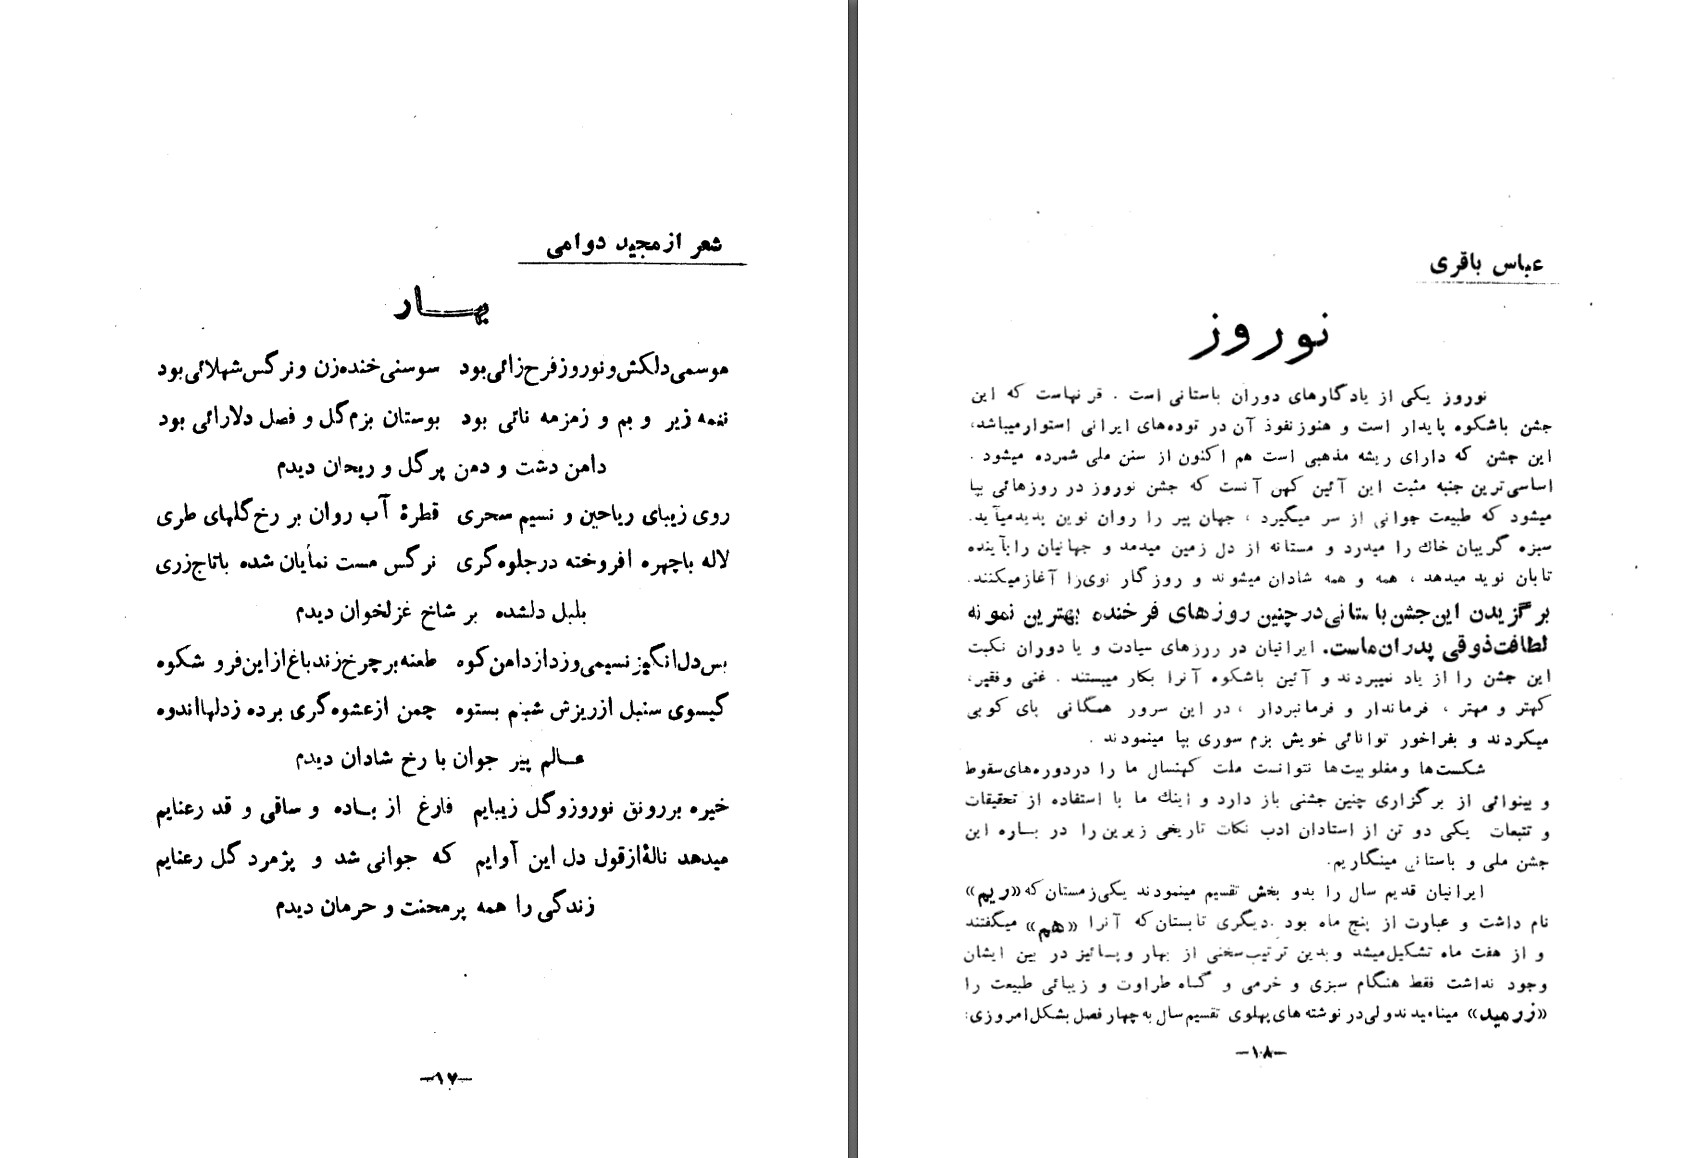 شعر از مجید دوامی
بهار
موسمی دلکش و نوروز فرح زائی بود سوسنی خنده زن و نرگس شهلائی بود
نغمه زیر و بم و زمزمه نائی بود بوستان بزم گل و فصل دلارائی بود
دامن دشت و دمن پر گل و ریحان دیدم
روی زیبای ریاحین و نسیم سحری قطرهٔ آب روان بر رخ گلهای طری
لاله با چهره افروخته در جلوه گری نرگس مست نمایان شده با تاج زری
بلبل دلشده بر شاخ غزلخوان دیدم
بس دل انگیز نسیمی وزد از دامن کوه طعنه بر چرخ زند باغ از این فر و شکوه
گیسوی سنبل از ریزش شبنم بستوه چمن از عشوه گری برده ز دلها اندوه
عالم پیر جوان با رخ شادان دیدم
خیره بر رونق نوروز و گل زیبایم فارغ از باده و ساقی و قد رعنایم
میدهد نالهٔ از قول دل این آوایم که جوانی شد و پژمرد گل رعنایم
زندگی را همه پر محنت و حرمان دیدم
–۱۷–
عباس باقری
نوروز
نوروز یکی از یادگارهای دوران باستانی است . قرنهاست که این
جشن باشکوه پایدار است و هنوز نفوذ آن در توده‌های ایرانی استوار میباشد،
این جشن که دارای ریشه مذهبی است هم اکنون از سنن ملی شمرده میشود .
اساسی‌ترین جنبه مثبت این آئین کهن آنست که جشن نوروز در روزهائی بپا
میشود که طبیعت جوانی از سر میگیرد ، جهان پیر را روان نوین پدید میآید.
سبزه گریبان خاك را میدرد و مستانه از دل زمین میدمد و جهانیان را بآینده
تابان نوید میدهد ، همه و همه شادان میشوند و روزگار نوی را آغاز میکنند.
برگزیدن این جشن باستانی در چنین روزهای فرخنده بهترین نمونه
لطافت ذوقی پدران ماست. ایرانیان در روزهای سیادت و یا دوران نکبت
این جشن را از یاد نمیبردند و آئین باشکوه آنرا بکار میبستند . غنی و فقیر،
کهتر و مهتر ، فرماندار و فرمانبردار ، در این سرور همگانی پای کوبی
میکردند و بفراخور توانائی خویش بزم سوری بپا مینمودند .
شکست‌ها و مغلوبیت‌ها نتوانست ملت کهنسال ما را در دوره‌های سقوط
و بینوائی از برگزاری چنین جشنی باز دارد و اینك ما با استفاده از تحقیقات
و تتبعات یکی دو تن از استادان ادب نکات تاریخی زیرین را در باره این
جشن ملی و باستانی مینگاریم.
ایرانیان قدیم سال را بدو بخش تقسیم مینمودند یکی زمستان که «ریم»
نام داشت و عبارت از پنج ماه بود .دیگری تابستان که آنرا «هم» میگفتند
و از هفت ماه تشکیل میشد و بدین ترتیب سخنی از بهار و پائیز در بین ایشان
وجود نداشت فقط هنگام سبزی و خرمی و گاه طراوت و زیبائی طبیعت را
«زرمید» مینامیدند ولی در نوشته های پهلوی تقسیم سال به چهار فصل بشکل امروزی:
–۱۸–